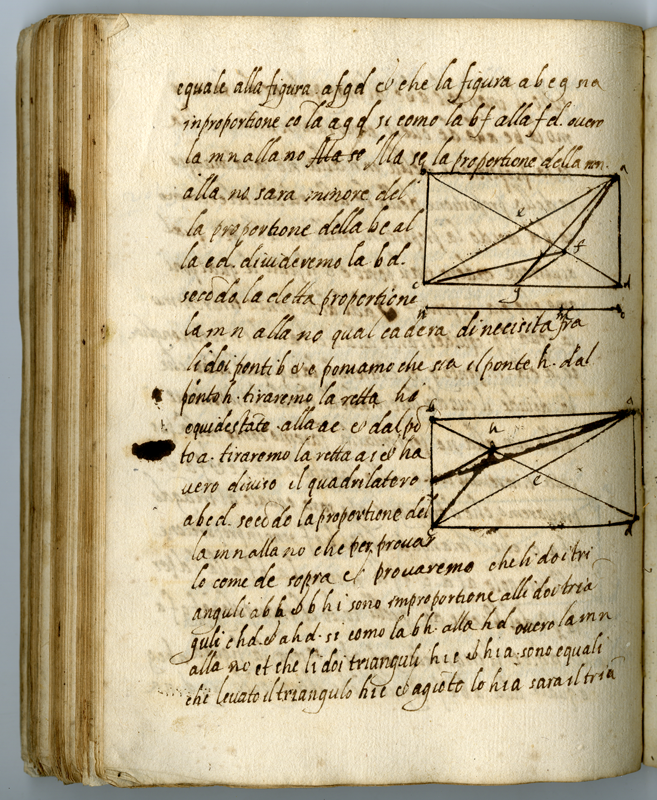 equale alla figura afgd et che la figura abeg na
inproportione cō la agd si como la bf alla fd. overo
la mn alla no Alla se la proportione della mn
alla no sara minore del
la proportione della be al
la ed. divideremo la bd.
secōdo la detta proportione
la mn alla no qual cadera di necisita fra
li doi ponti b et e poniamo che sia il ponte h. dal
ponto h. tiraremo la retta hi
equidestāte alla ae et dal pō
to a. tiraremo la retta ai et ha
vero diviso il quadrilatero
abcd. secōdo la proportione del
la mn alla no che per provar
lo come de sopra et provaremo che li doi tri
anguli abh et bhi sono inproportione alli doi tria
guli chd et ahd. si como la bh. alla hd overo la mn
alla no et che li doi trianguli hie et hia. sono equali
che levato il triangulo hie et agiōto lo hia sara il triā
b
a
e
f
c
g
d
m
n
o
b
a
h
e
d